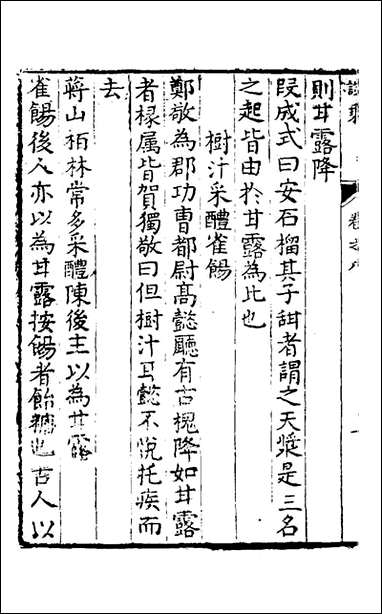 卷之八
則甘露降
段成式曰安石榴其子甜者謂之天漿是三名
之起皆由於甘露為比也
樹汁采醴雀餳
鄭敬為郡功曹都尉高懿廳有古槐降如甘露
者椽属皆賀獨敬曰但樹汁耳懿不悅托疾而
去
蔣山栢林常多采醴陳後主以為甘露
雀餳後人亦以為甘露按餳者飴糖也古人以